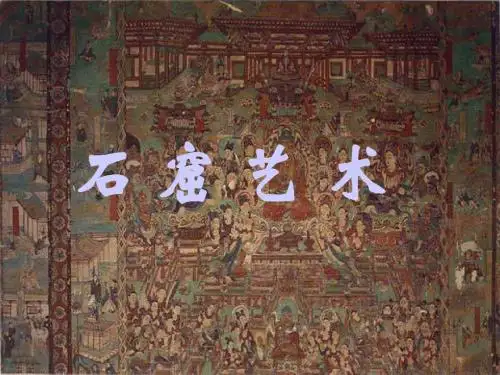 石窟艺术